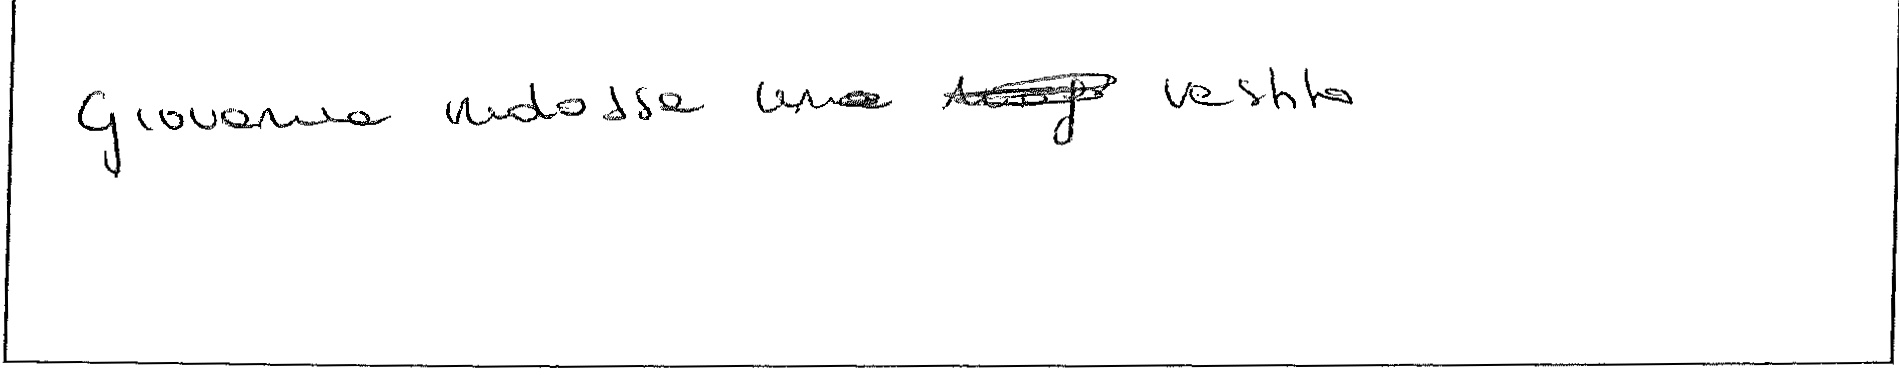 Giovanna indossa una vestito